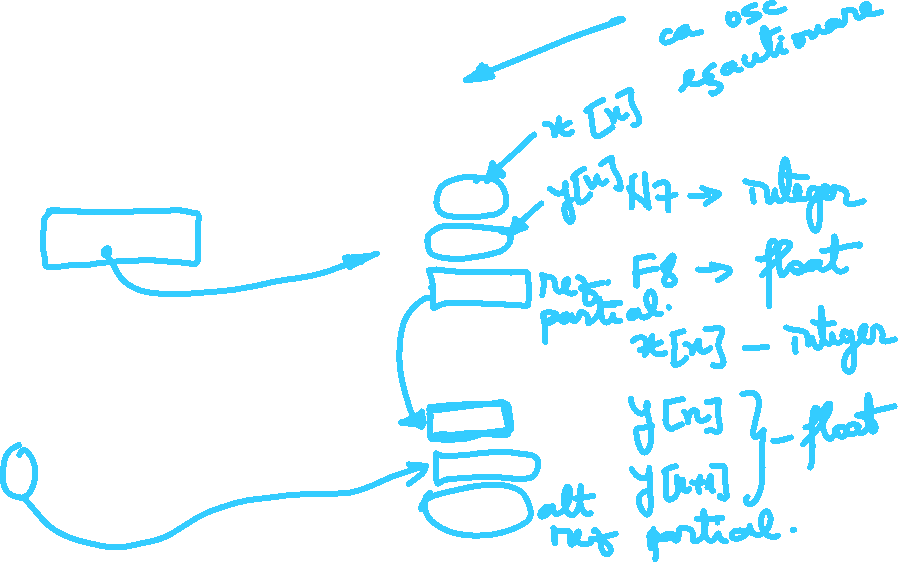 ca osc
esantionare
x[n]
y[n] N7 → integer
rez. F8 → float
partial.
x[n] - integer
y[n]
- float
y[n+1]
alt
rez partial.